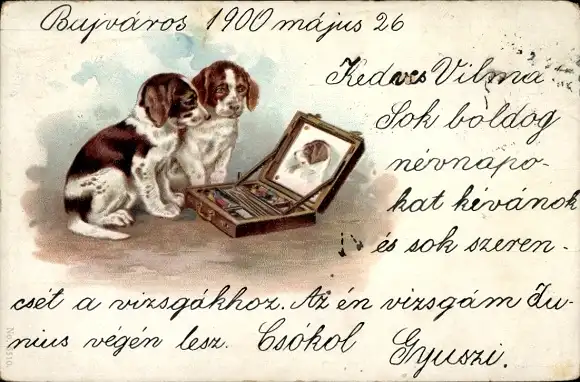 Bujváros 1900 május 26
Kedves Vilma
Sok boldog
névnapo-
kat kévánok
és sok szeren-
csét a vizsgákhoz. Az én vizsgám Ju-
nius végén lesz. Csókol Gyuszi.